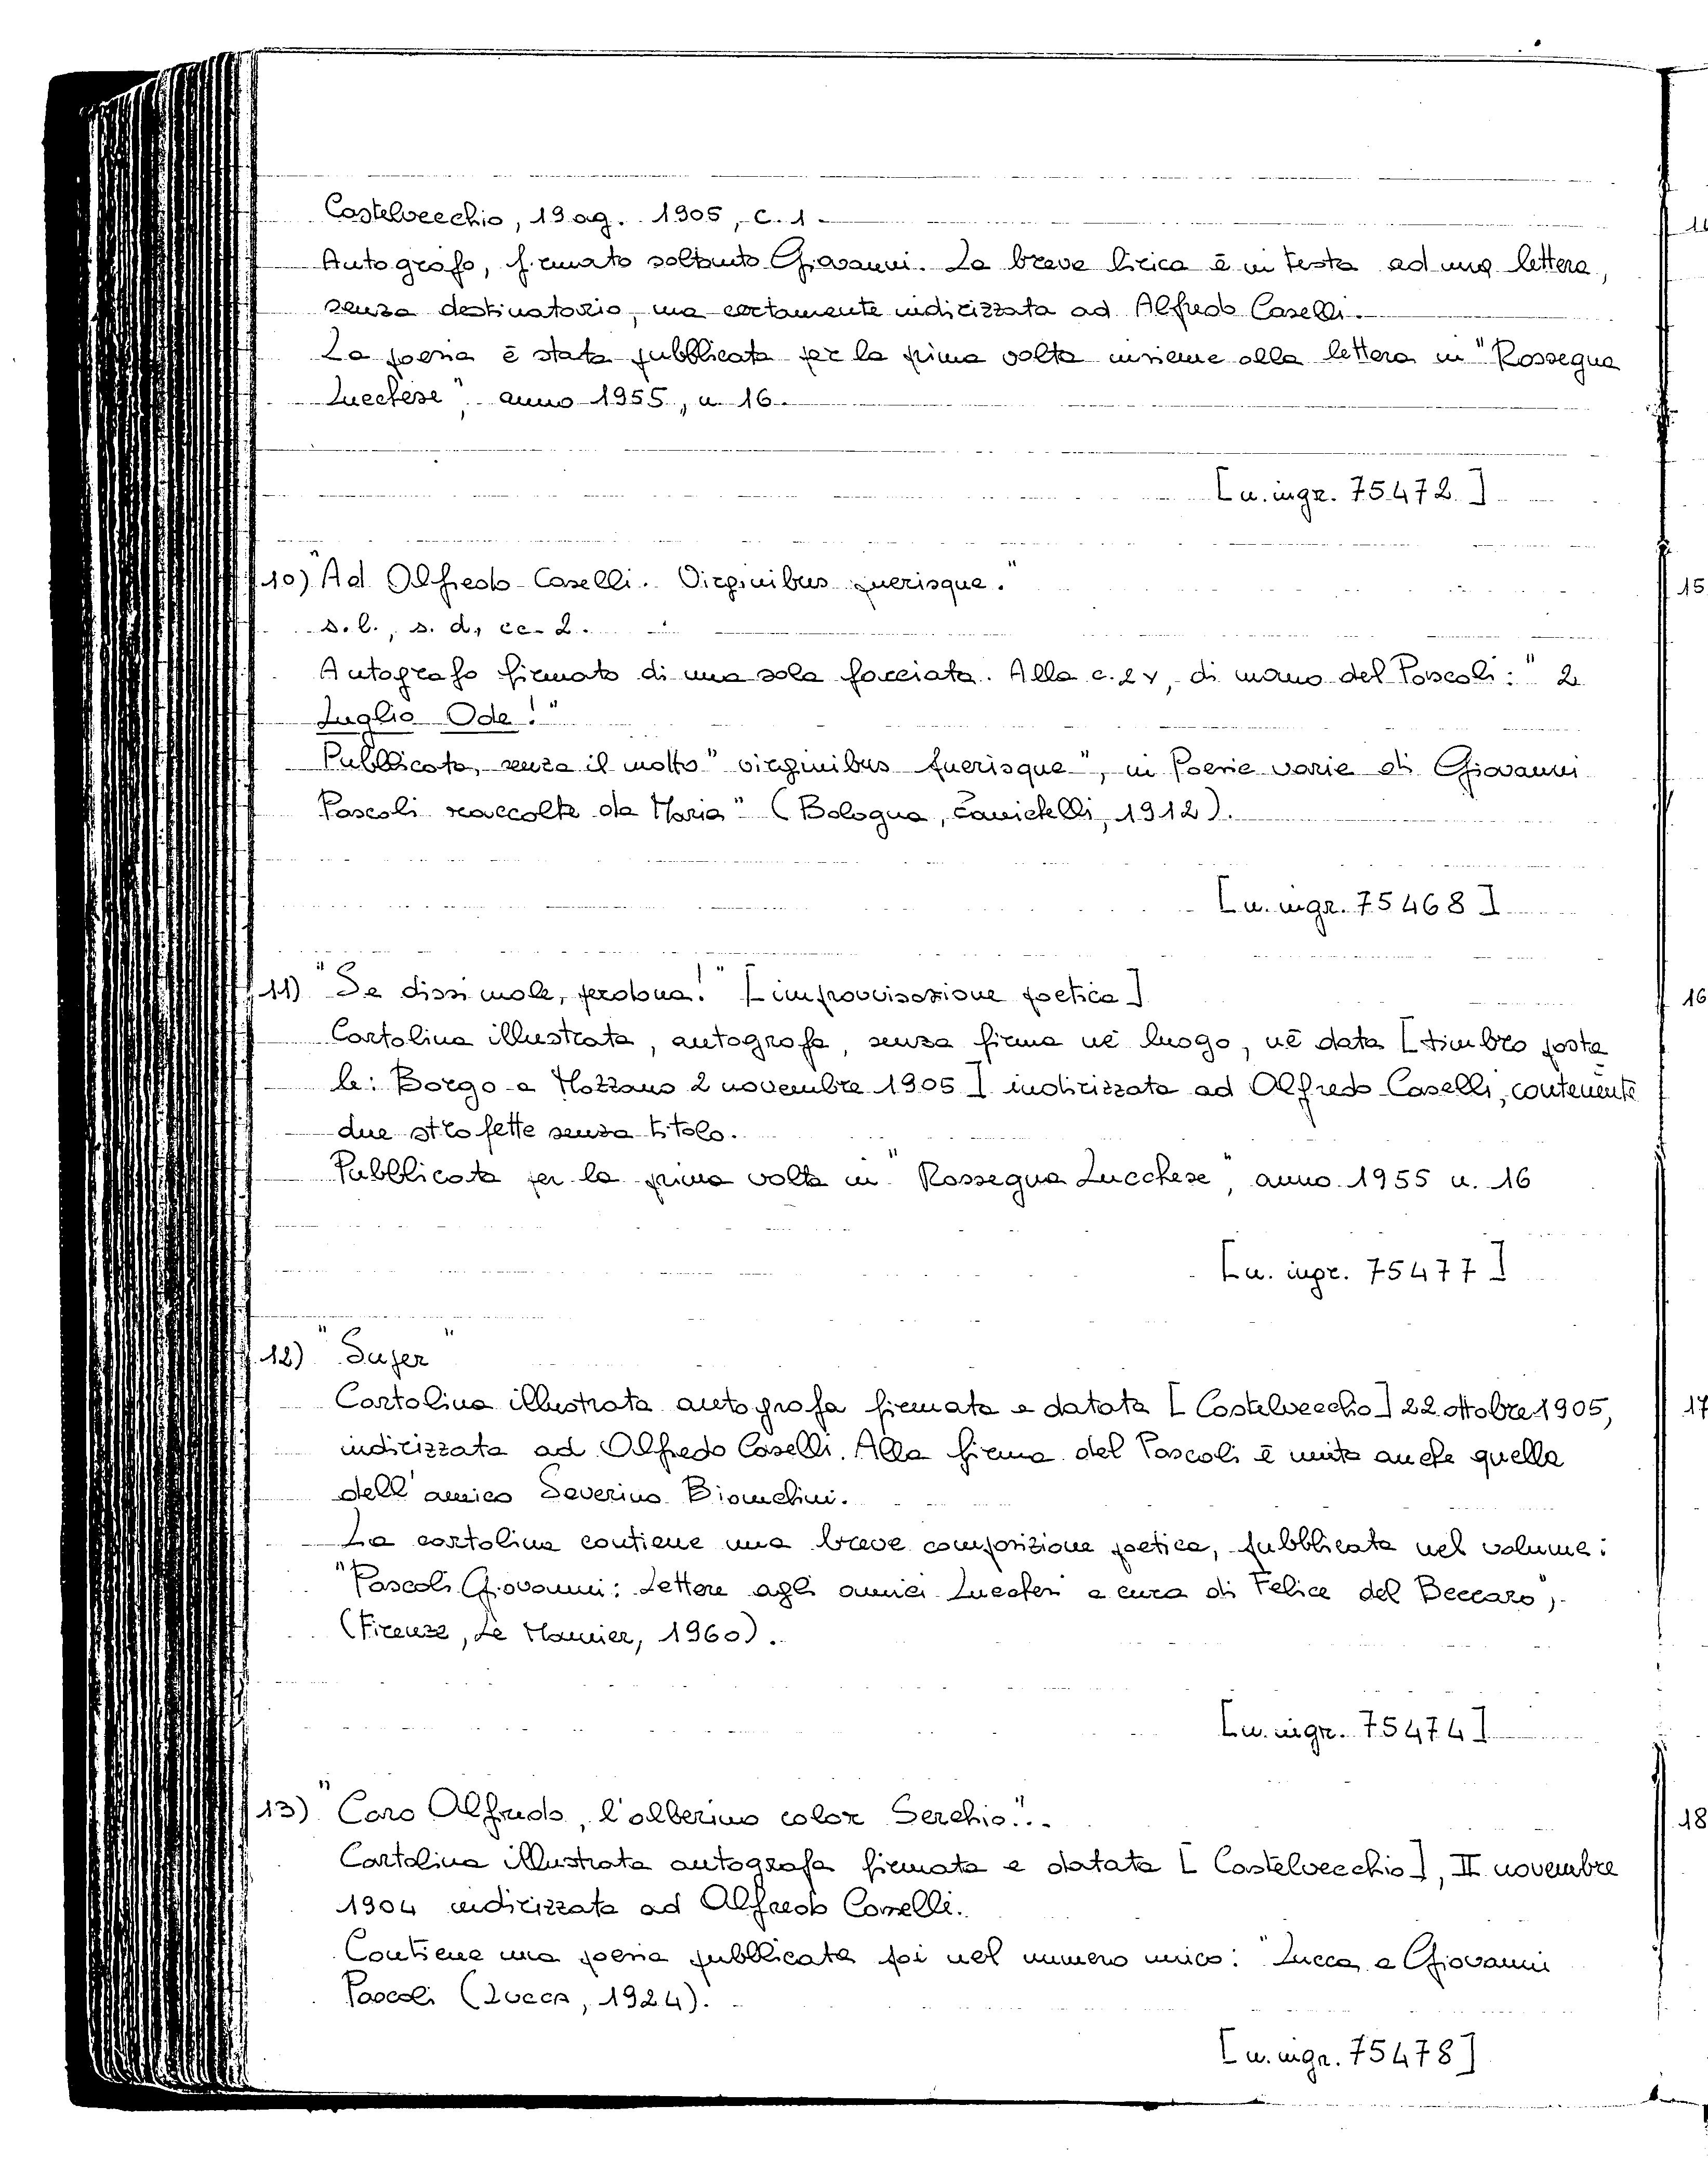 Castelvecchio, 19 ag. 1905, c. 1.
Autografo, firmato soltanto Giovanni. La breve lirica è in testa ad una lettera,
senza destinatario, ma certamente indirizzata ad Alfredo Caselli.
La poesia è stata pubblicata per la prima volta insieme alla lettera in "Rassegna
Lucchese", anno 1955, n 16.
[n. ingr. 75472]
10) "Ad Alfredo Caselli. Virginibus puerisque."
s. l., s. d., cc. 2.
Autografo firmato di una sola facciata. Alla c. 2v, di mano del Pascoli: " 2
Luglio Ode!"
Pubblicata, senza il motto "virginibus puerisque", in Poesie varie di Giovanni
Pascoli raccolte da Maria" (Bologna, Zanichelli, 1912).
[n. ingr. 75468]
11) "Se dissi mole, perdona!" [improvvisazione poetica]
Cartolina illustrata, autografa, senza firma nè luogo, nè data [timbro posta
le: Borgo a Mozzano 2 novembre 1905] indirizzata ad Alfredo Caselli, contenente
due strofette senza titolo.
Pubblicata per la prima volta in "Rassegna Lucchese", anno 1955 n. 16
[n. ingr. 75477]
12) "Super"
Cartolina illustrata autografa firmata e datata [Castelvecchio] 22 ottobre 1905,
indirizzata ad Alfredo Caselli. Alla firma del Pascoli è unita anche quella
dell'amico Severino Bianchini.
La cartolina contiene una breve composizione poetica, pubblicata nel volume:
"Pascoli Giovanni: Lettere agli amici Lucchesi a cura di Felice del Beccaro",
(Firenze, Le Monnier, 1960).
[n. ingr. 75474]
13) "Caro Alfredo, l'alberino color Serchio"...
Cartolina illustrata autografa firmata e datata [Castelvecchio], II novembre
1904 indirizzata ad Alfredo Caselli.
Contiene una poesia pubblicata poi nel numero unico: "Lucca a Giovanni
Pascoli (Lucca, 1924).
[n. ingr. 75478]
15
16
17
18